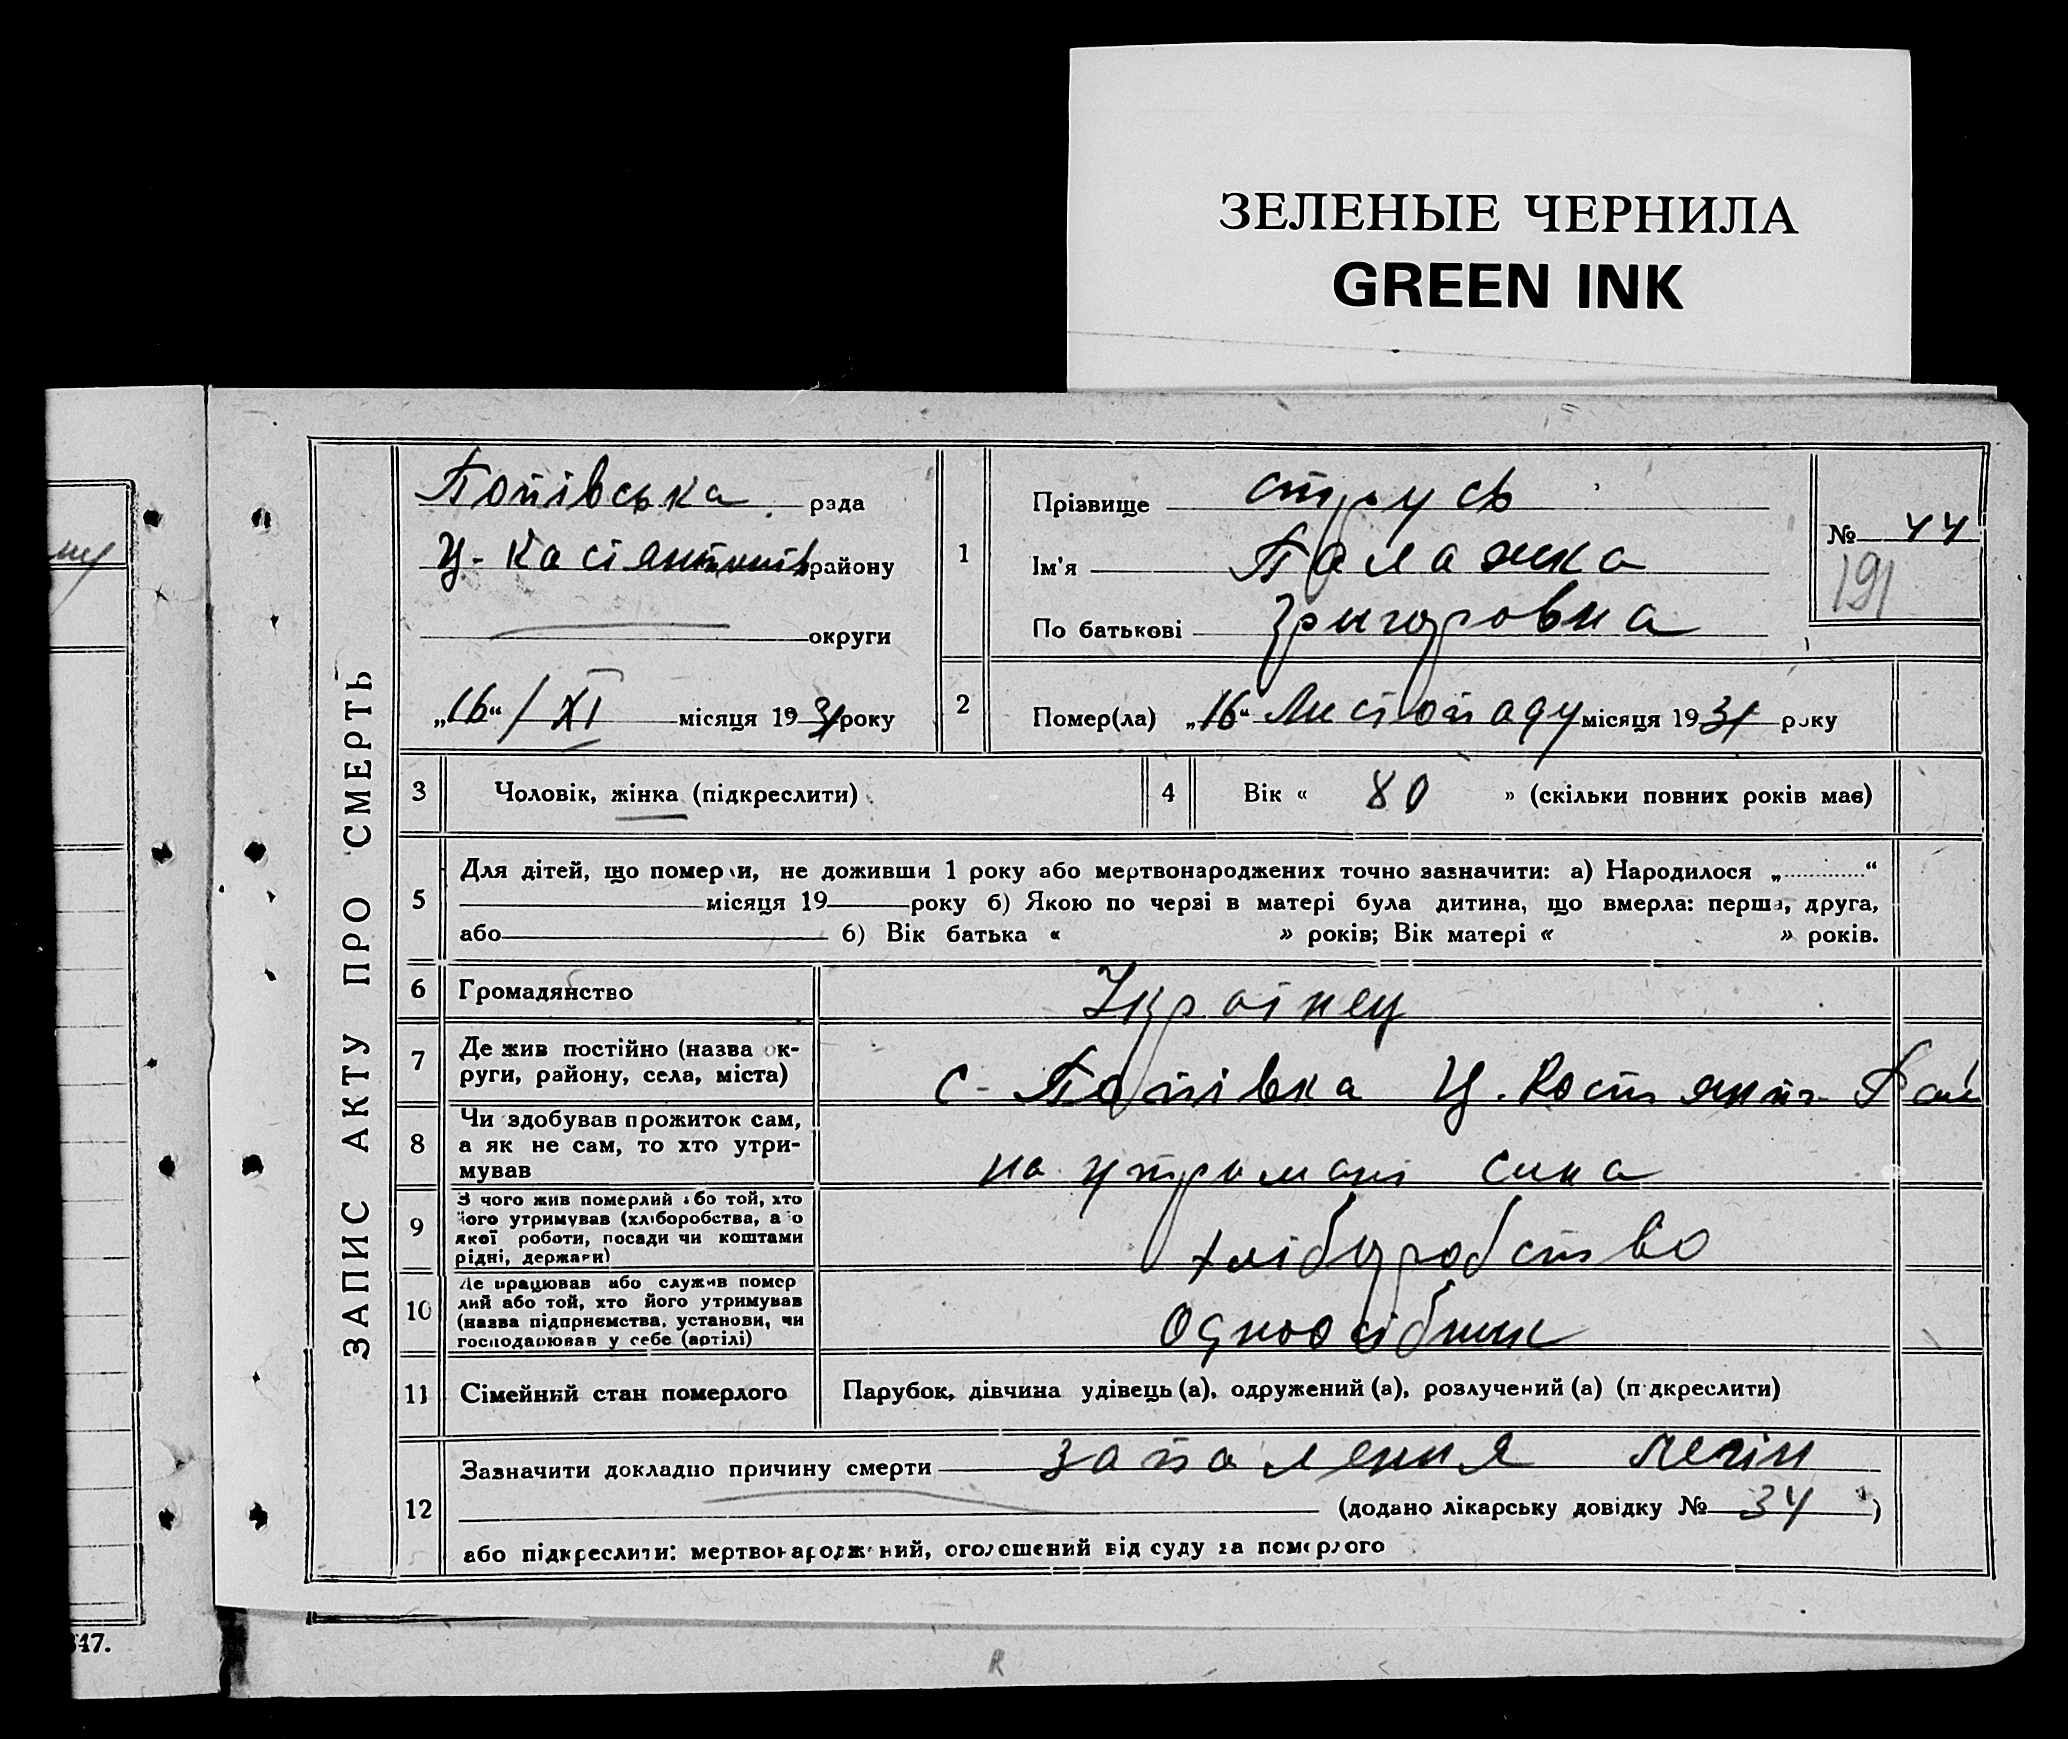 ЗЕЛЕНЫЕ ЧЕРНИЛА
GREEN INK
ЗАПИС АКТУ ПРО СМЕРТЬ
Попівська рада
Ц-Касіянтинів району
округи
„16“ / XI місяця 1931 року
1
Прізвище Струсь
Ім'я Палажка
По батькові Григоровна
№ 44
191
2
Помер(ла) „16“ Листопаду місяця 1931 року
3 Чоловік, жінка (підкреслити)
4 Вік « 80 » (скільки повних років має)
5
Для дітей, що померли, не доживши 1 року або мертвонароджених точно зазначити: а) Народилося „ “
місяця 19 року б) Якою по черзі в матері була дитина, що вмерла: перша, друга,
або б) Вік батька « » років; Вік матері « » років.
6 Громадянство Українец
7 Де жив постійно (назва ок-
руги, району, села, міста)
с- Попівка Ц. Костянт- Рай
8 Чи здобував прожиток сам,
а як не сам, то хто утри-
мував
на утримані сина
9 З чого жив померлий або той, хто
його утримував (хліборобства, або
якої роботи, посади чи коштами
рідні, держави)
хліборобство
10 Де працював або служив помер
лий або той, хто його утримував
(назва підприємства, установи, чи
господарював у себе (артілі)
Одноосібник
11 Сімейний стан померлого Парубок, дівчина удівець (а), одружений (а), розлучений (а) (підкреслити)
12 Зазначити докладно причину смерти запалення легін
(додано лікарську довідку № 34 )
або підкреслити: мертвонароджений, оголошений від суду за померлого
347.
R